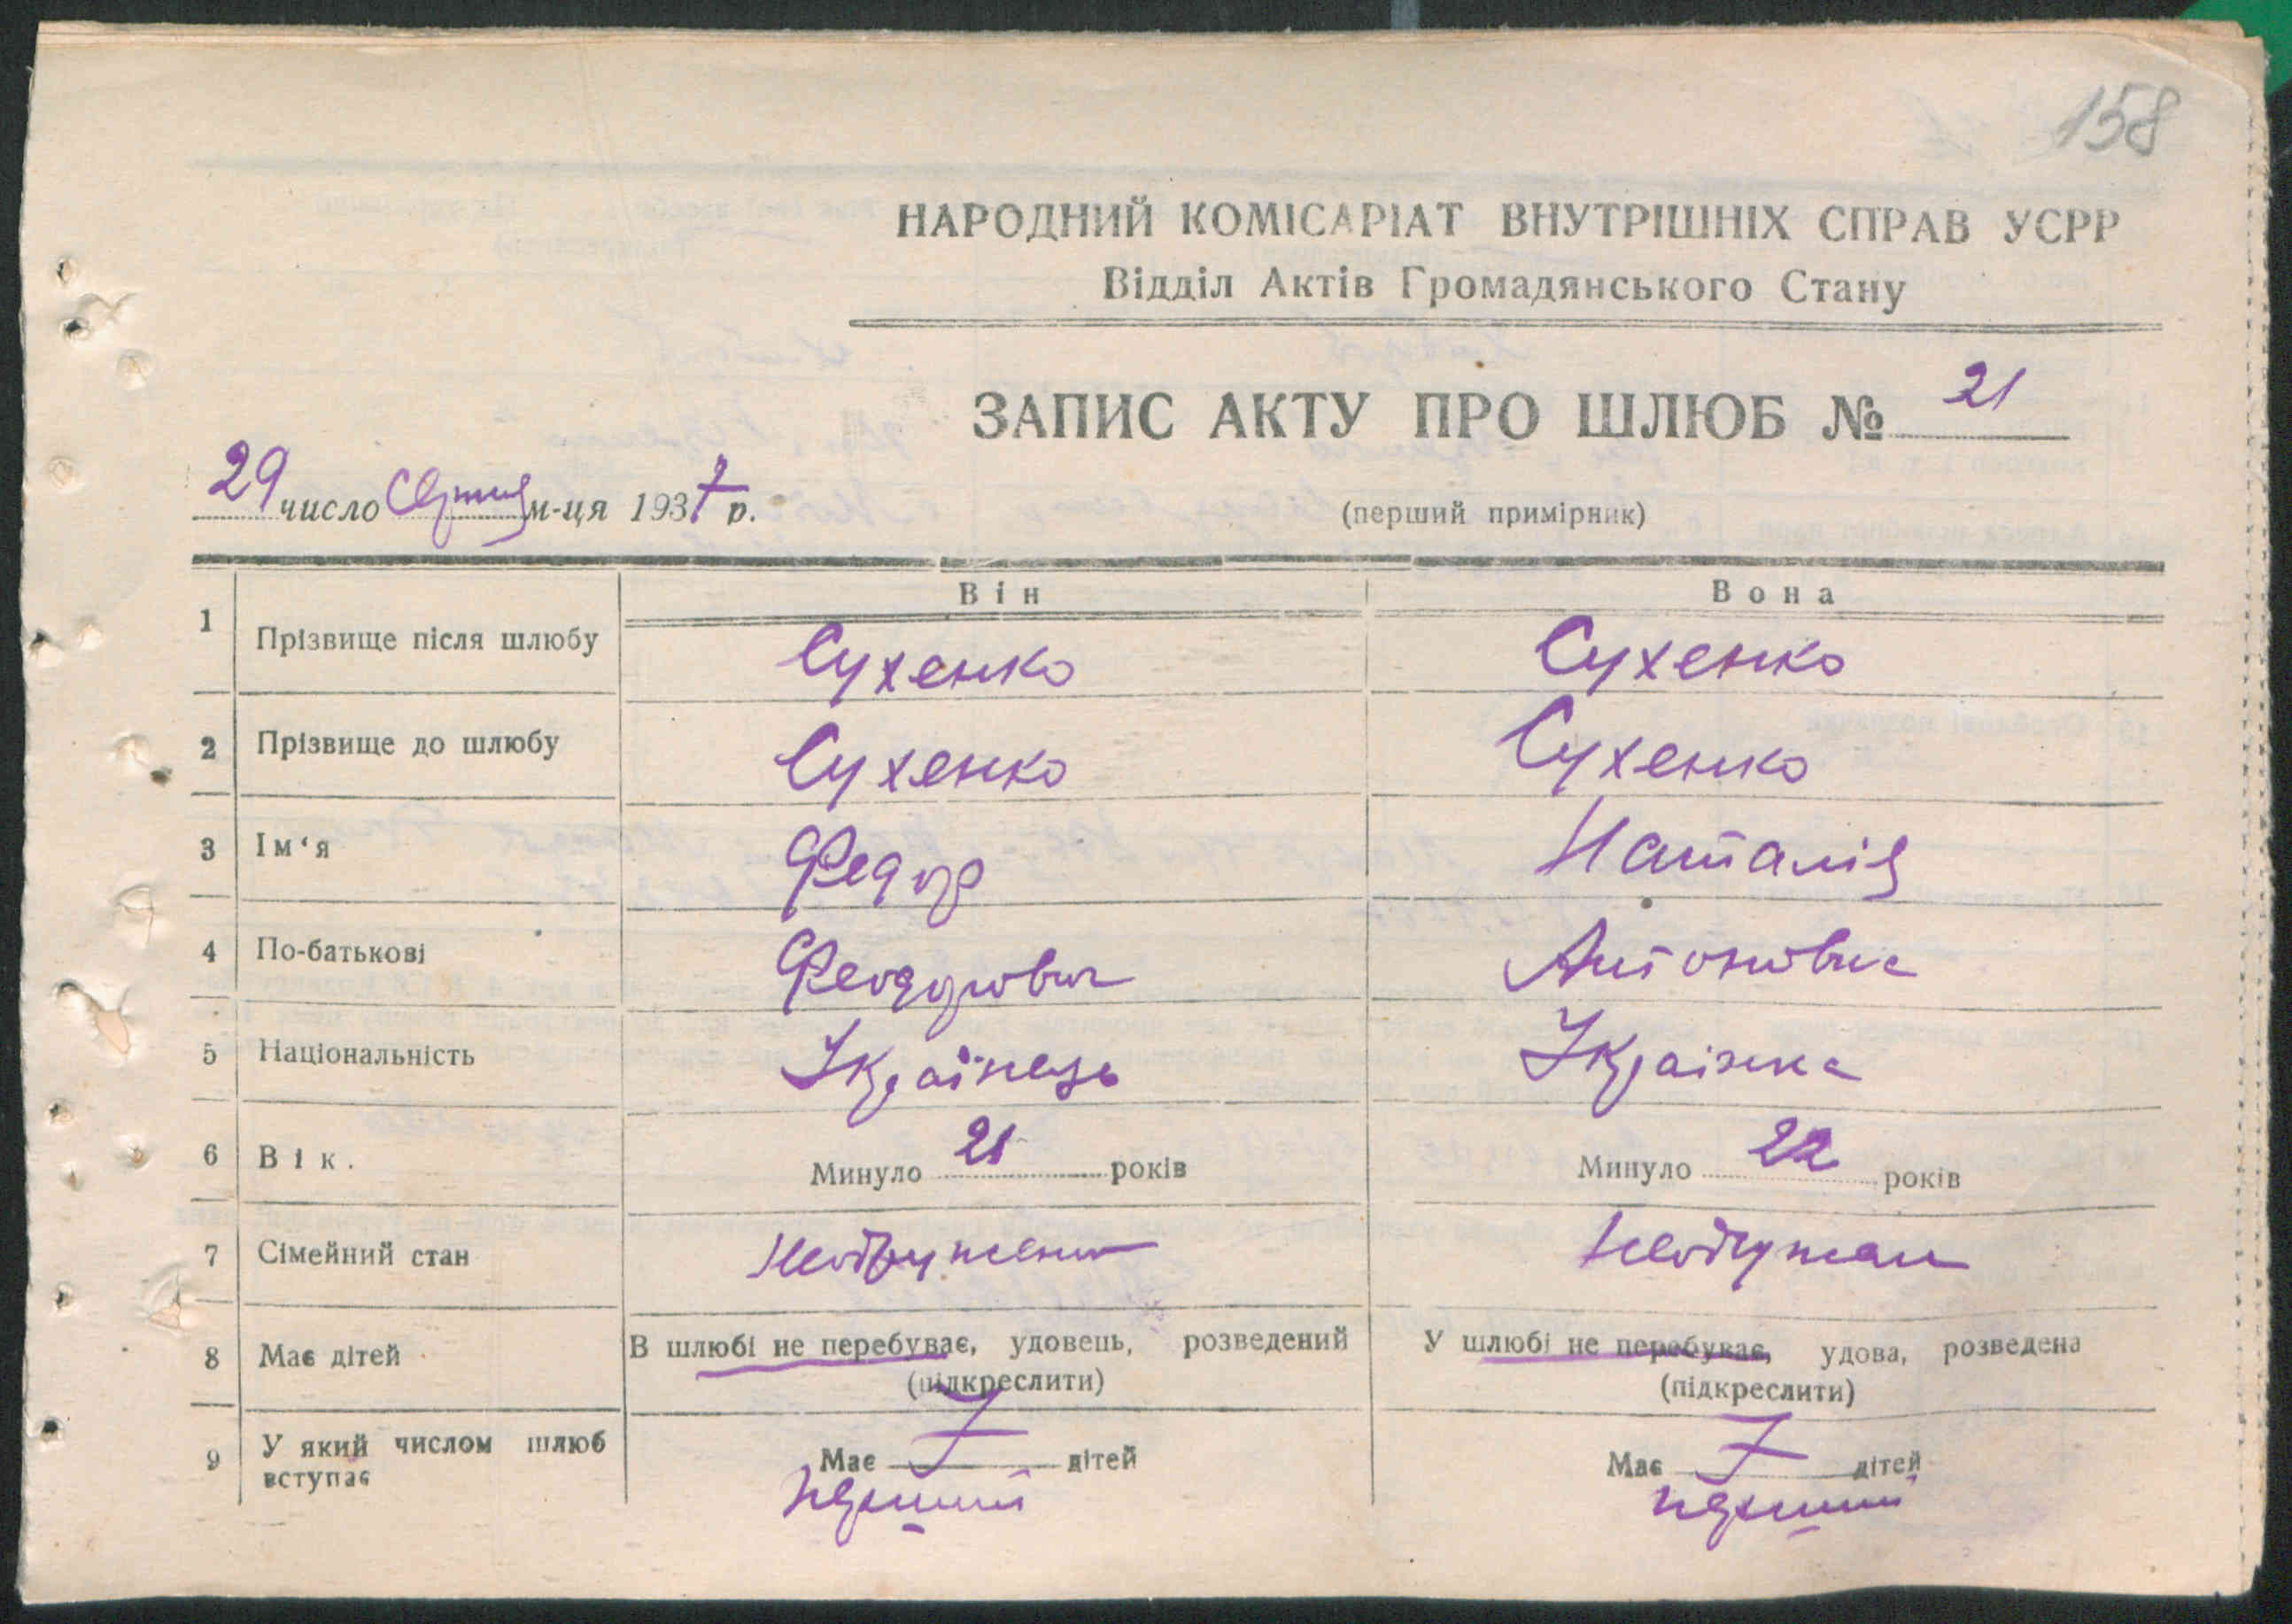 158
НАРОДНИЙ КОМІСАРІАТ ВНУТРІШНІХ СПРАВ УСРР
Відділ Актів Громадянського Стану
ЗАПИС АКТУ ПРО ШЛЮБ № 21
29 число Серпня м-ця 1937 р.
(перший примірник)
Він Вона
1 Прізвище після шлюбу Сухенко Сухенко
2 Прізвище до шлюбу Сухенко Сухенко
3 Ім‘я Федор Наталія
4 По-батькові Феодорович Антоновна
5 Національність Українець Українка
6 Вік. Минуло 21 років Минуло 22 років
7 Сімейний стан
8 Має дітей В шлюбі не перебуває, удовець, розведений У шлюбі не перебуває, удова, розведена
(підкреслити) (підкреслити)
9 У який числом шлюб вступає Має дітей Має дітей
перший перший